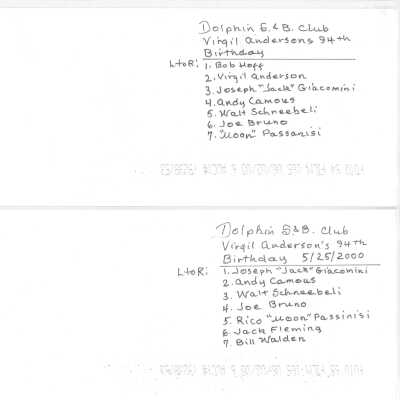 Dolphin S.&B. Club
Virgil Andersons 94th
Birthday
L to R: 1. Bob Hoff
2. Virgil Anderson
3. Joseph "Jack" Giacomini
4. Andy Camous
5. Walt Schneebeli
6. Joe Bruno
7. "Moon" Passanisi
Dolphin S&B. Club
Virgil Anderson's 94th
Birthday 5/25/2000
L to R: 1. Joseph "Jack" Giacomini
2. Andy Camous
3. Walt Schneebeli
4. Joe Bruno
5. Rico "Moon" Passinisi
6 Jack Fleming
7 Bill Walden